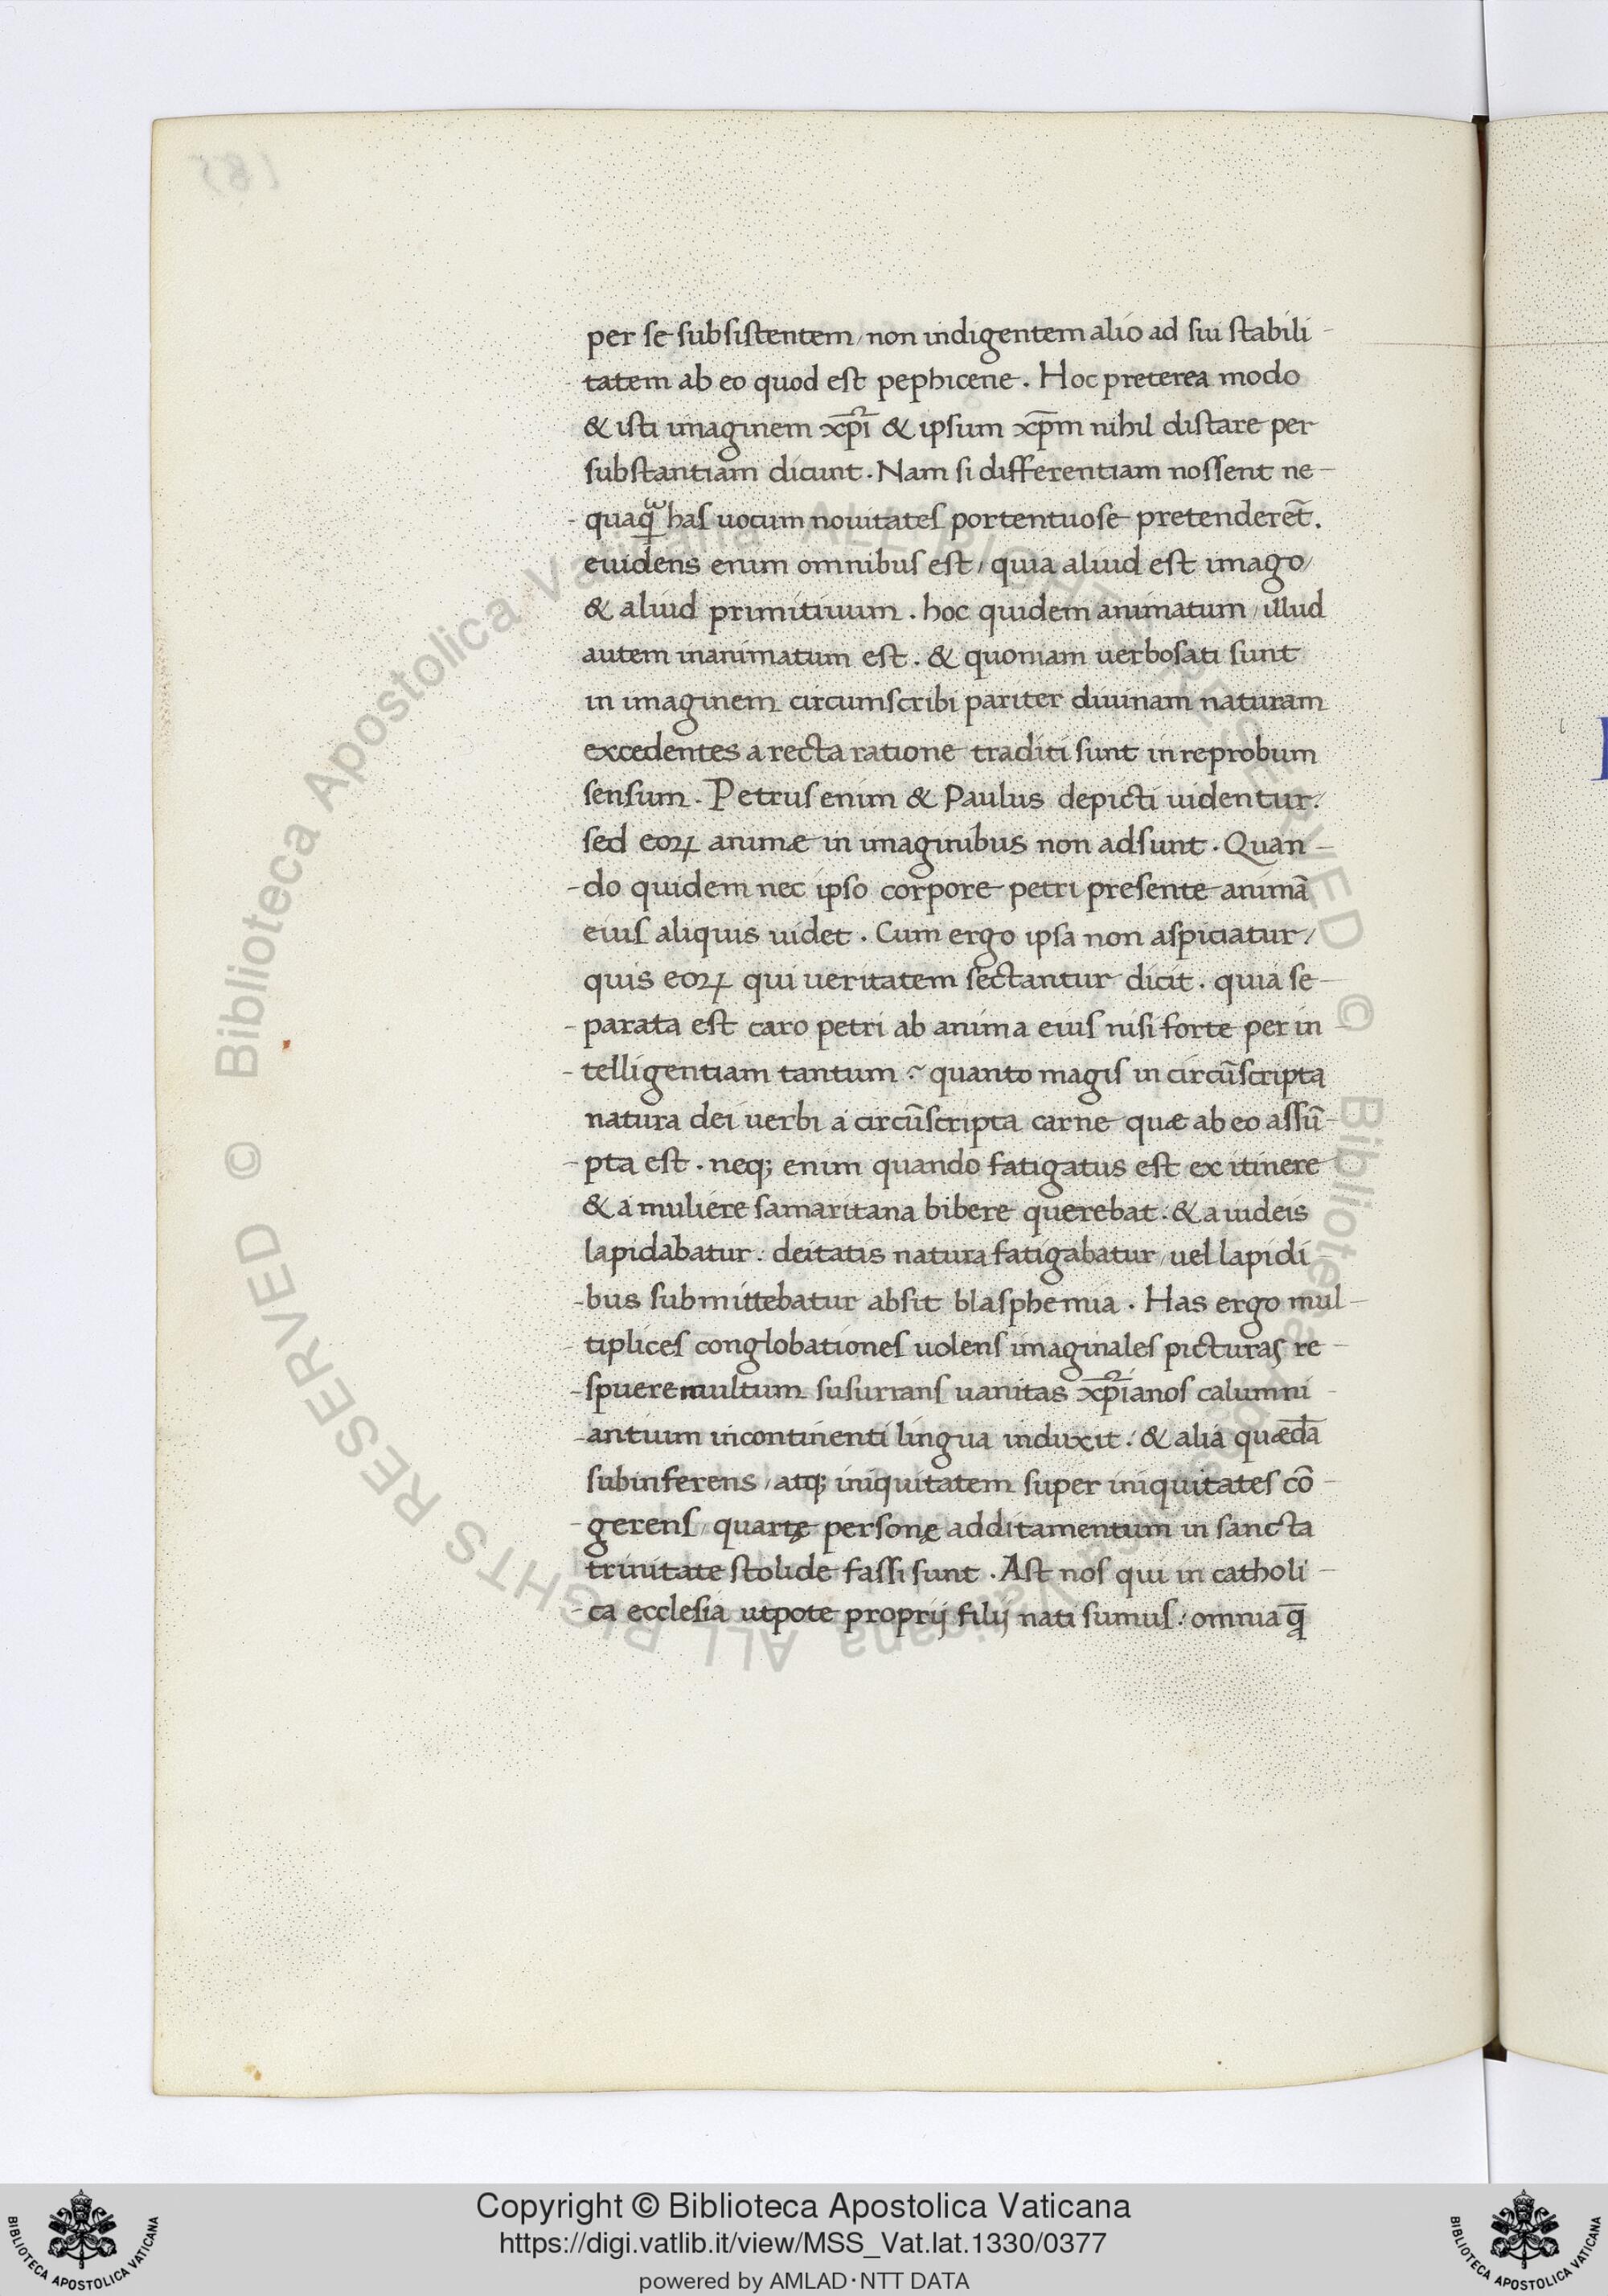 per se subsistentem / non indigentem alio ad sui stabili-
tatem ab eo quod est pephicene. Hoc preterea modo
& isti imaginem xp̄i & ipsum xp̄m nihil distare per
substantiam dicunt. Nam si differentiam nossent ne-
-quaq̃ has uocum nouitates portentuose pretenderet̄.
euidens enim omnibus est / quia aliud est imago /
& aliud primitiuum. hoc quidem animatum / illud
autem inanimatum est. & quoniam uerbosati sunt
in imaginem circumscribi pariter diuinam naturam
excedentes a recta ratione traditi sunt in reprobum
sensum. Petrus enim & Paulus depicti uidentur.
sed eoꝝ animæ in imaginibus non adsunt. Quan-
-do quidem nec ipso corpore petri presente animā
eius aliquis uidet. Cum ergo ipsa non aspiciatur /
quis eoꝝ qui ueritatem sectantur dicit. quia se-
-parata est caro petri ab anima eius nisi forte per in-
-telligentiam tantum? quanto magis in circūscripta
natura dei uerbi a circūscripta carne quæ ab eo assū-
-pta est. neq; enim quando fatigatus est ex itinere
& a muliere samaritana bibere querebat: & a iudeis
lapidabatur: deitatis natura fatigabatur / uel lapidi-
-bus submittebatur absit blasphemia. Has ergo mul-
-tiplices conglobationes uolens imaginales picturas re-
-spuere multum susurrans uanitas xp̄ianos calumni-
-antium incontinenti lingua induxit: & alia quædā
subinferens / atq; iniquitatem super iniquitates cō-
-gerens / quartę personę additamentum in sancta
trinitate stolide fassi sunt. Ast nos qui in catholi-
-ca ecclesia utpote proprij filij nati sumus: omnia q̄
© Biblioteca Apostolica Vaticana ALL RIGHTS RESERVED © Biblioteca Apostolica Vaticana ALL RIGHTS RESERVED
Copyright © Biblioteca Apostolica Vaticana
https://digi.vatlib.it/view/MSS_Vat.lat.1330/0377
powered by AMLAD·NTT DATA
BIBLIOTECA APOSTOLICA VATICANA
BIBLIOTECA APOSTOLICA VATICANA